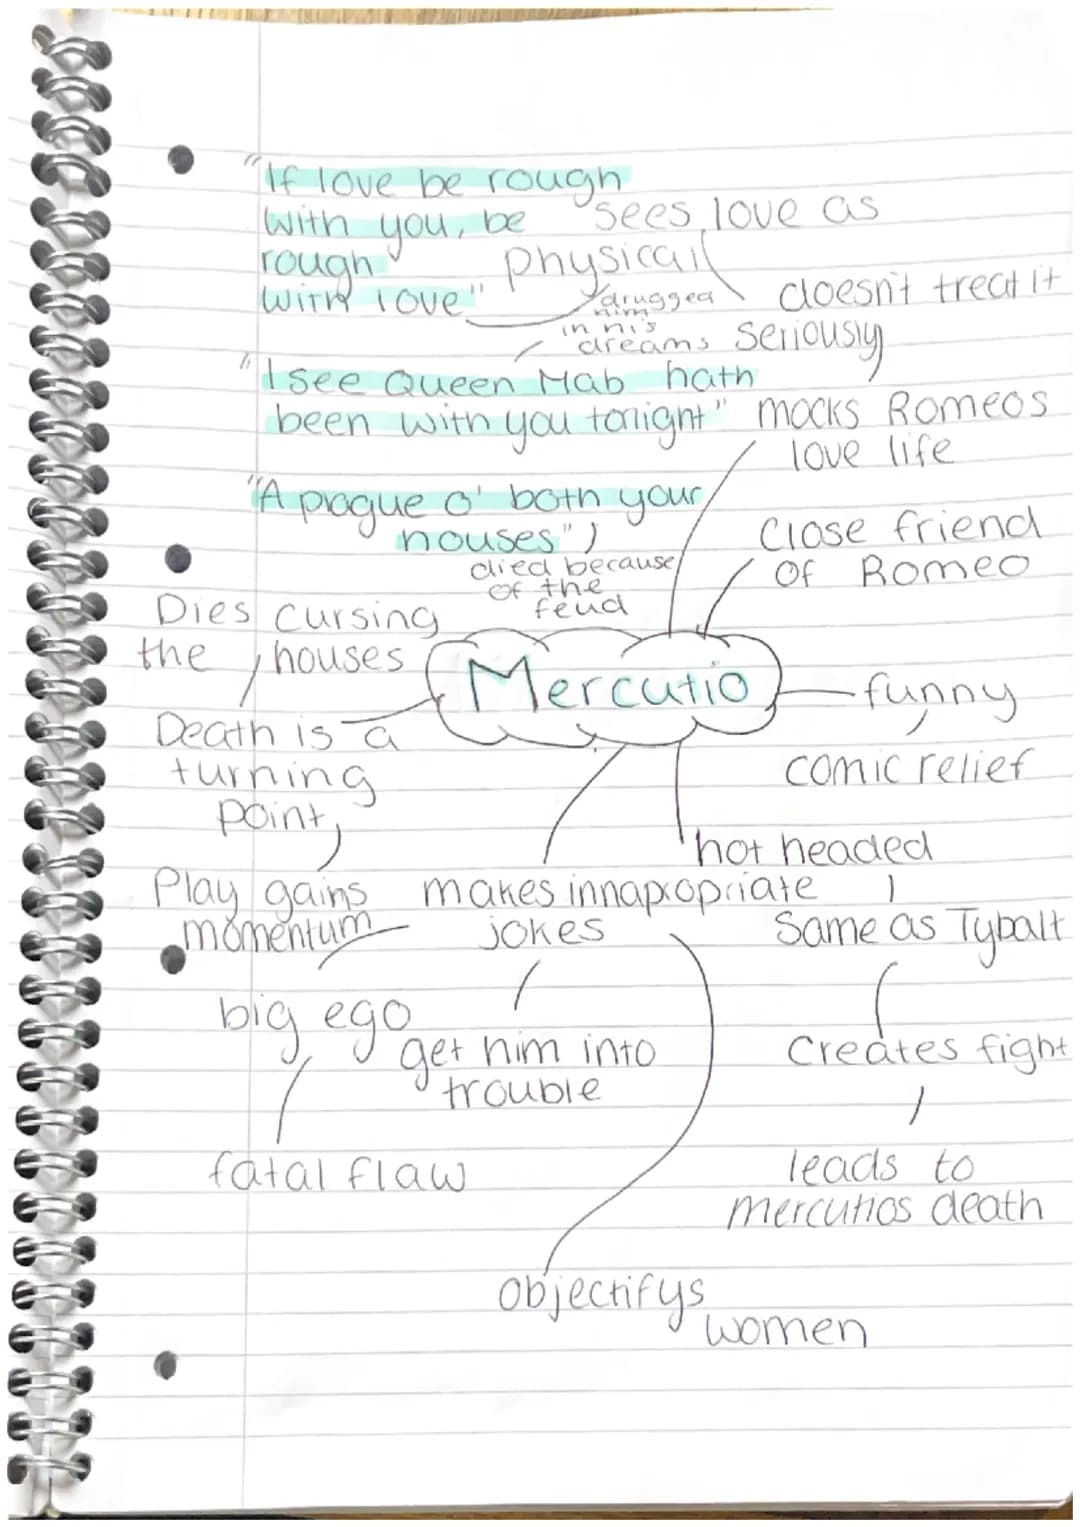 "If love be rough
with you, be
rough
with love"
sees love as
physical
doesn't treat it
seriously
drugged
him
in his
dreams
"I see Queen Mab hath
been with you tonight"
mocks Romeos
love life
"A plague o' both your
houses"
died because
of the
feud
Close friend
of Romeo
Dies cursing
the houses
Mercutio
funny
comic relief
Death is a
turning
point
hot headed
Play gains
momentum
makes innapropriate
jokes
Same as Tybalt
big ego
get him into
trouble
Creates fight
fatal flaw
leads to
mercutios death
Objectifys
women